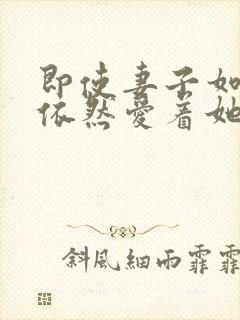 即使妻子如
依然愛着她
斜風細雨霏霏